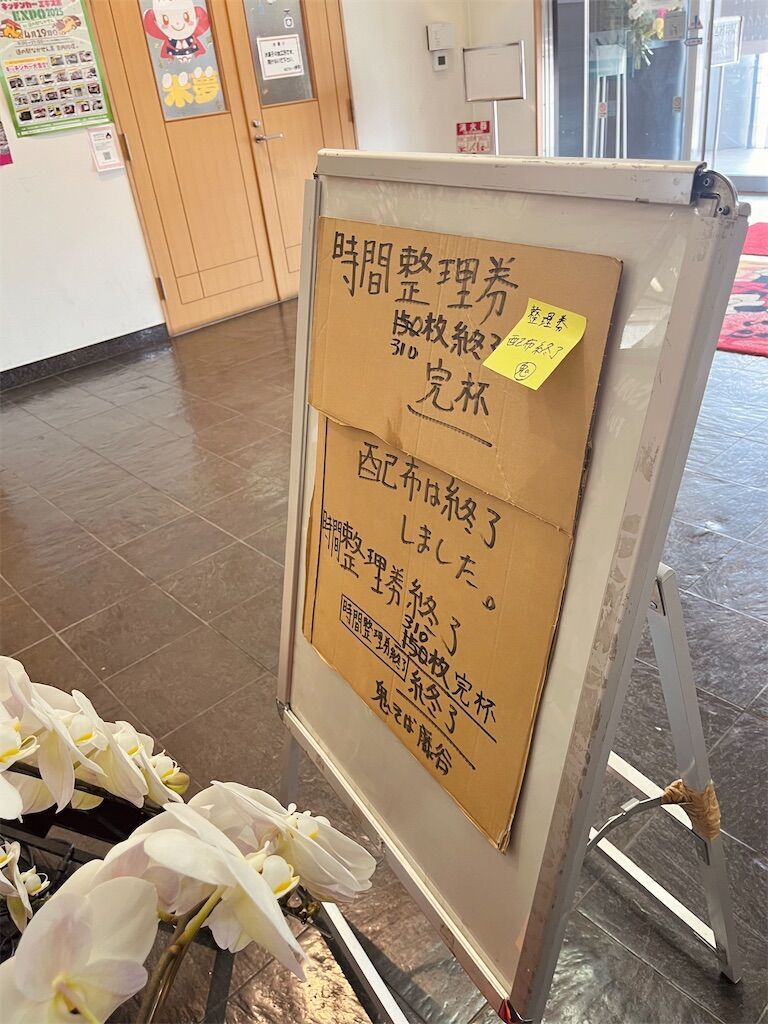 キッチンカー
EXPO2025
4月19日
米夢
消火器
時間整理券
150枚終了
310
完杯
整理券
配布終了
鬼
配布は終了
しました。
時間整理券終了
310
150枚完杯
時間整理券終了
終了
鬼そば藤谷